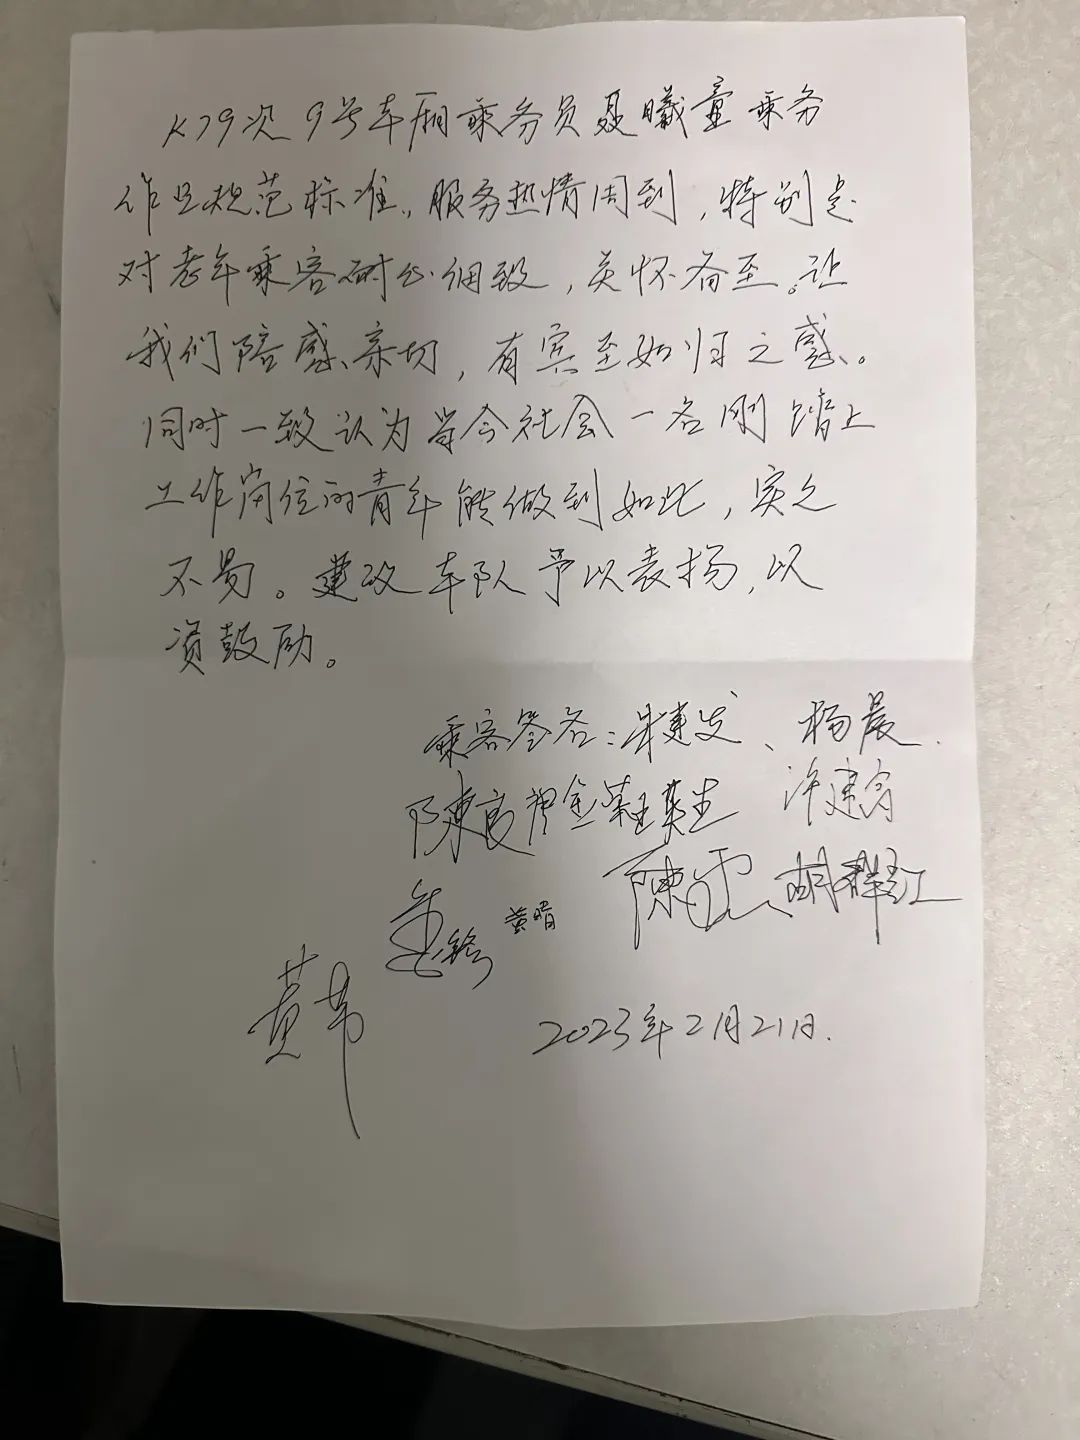 K79次9号车厢乘务员聂曦童乘务
作业规范标准、服务热情周到,特别是
对老年乘客耐心细致,关怀备至。让
我们陪感亲切,有宾至如归之感。
同时一致认为当今社会一名刚踏上
工作岗位的青年能做到如此,实之
不易。建议车队予以表扬,以
资鼓励。
乘客签名:朱建发、杨晨
陳良 许建
陳 胡群红
黄晴
黄
2023年2月21日.